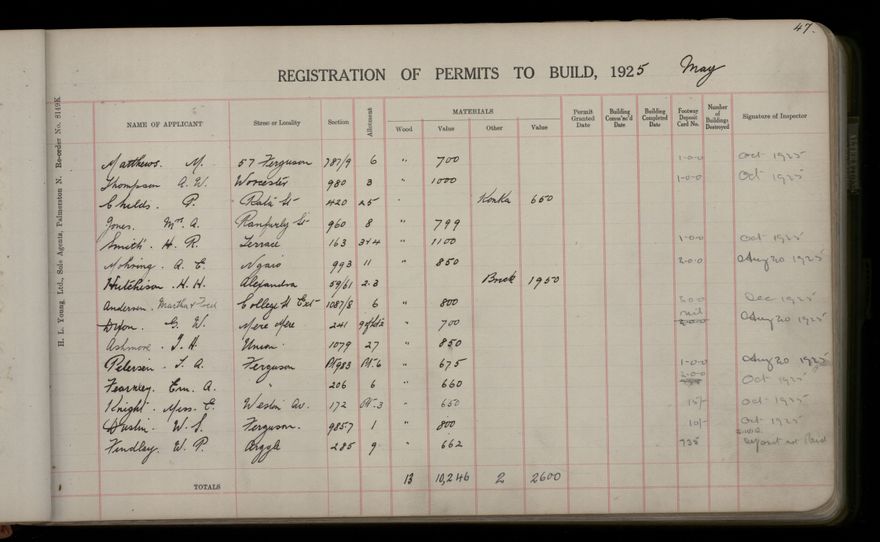 47.
REGISTRATION OF PERMITS TO BUILD, 1925 May
H. L. Young Ltd., Sole Agents, Palmerston N. Re-order No. 8149K
NAME OF APPLICANT Street or Locality Section Allotment MATERIALS Wood Value Other Value Permit Granted Date Building Comm'nc'd Date Building Completed Date Footway Deposit Card No. Number of Buildings Destroyed Signature of Inspector
Matthews. M. 57 Ferguson 787/9 6 " 700 1-0-0 Oct 1925
Thompson A. W. Worcester 980 3 " 1000 1-0-0 Oct 1925
Childs. P. Rata St 420 25 Konka 650
Jones. Mrs. A. Ranfurly St 960 8 " 799
Smith. H. R. Terrace 163 3+4 " 1100 1-0-0 Oct 1925
Mohring. A. E. Ngaio 993 11 " 850 2-0-0 Aug 20 1925
Hutchison. H. H. Alexandra 59/61 2.3 Brick 1950
Anderson. Martha + Fred College St Ext 1087/8 6 " 800 2-0-0 Dec 1925
Dixon. G. W. Mere Mere 241 " 700 nil Aug 20 1925
Ashmore. J. H. Union. 1079 27 " 850
Petersen. J. A. Ferguson Pt 983 Pt. 6 " 675 1-0-0 Aug 20 1925
Fearnley. Ern. A. " 206 6 " 660 2-0-0 Oct 1925
Knight. Miss. E. Weston Av. 172 Pt. 3 " 650 15/- Oct 1925
Dustin. W. S. Ferguson. 985 7 1 " 800 10/- Oct 1925
Findley. W. P. Argyle 285 9 " 662 735 deposit not paid
TOTALS 13 10,246 2 2600